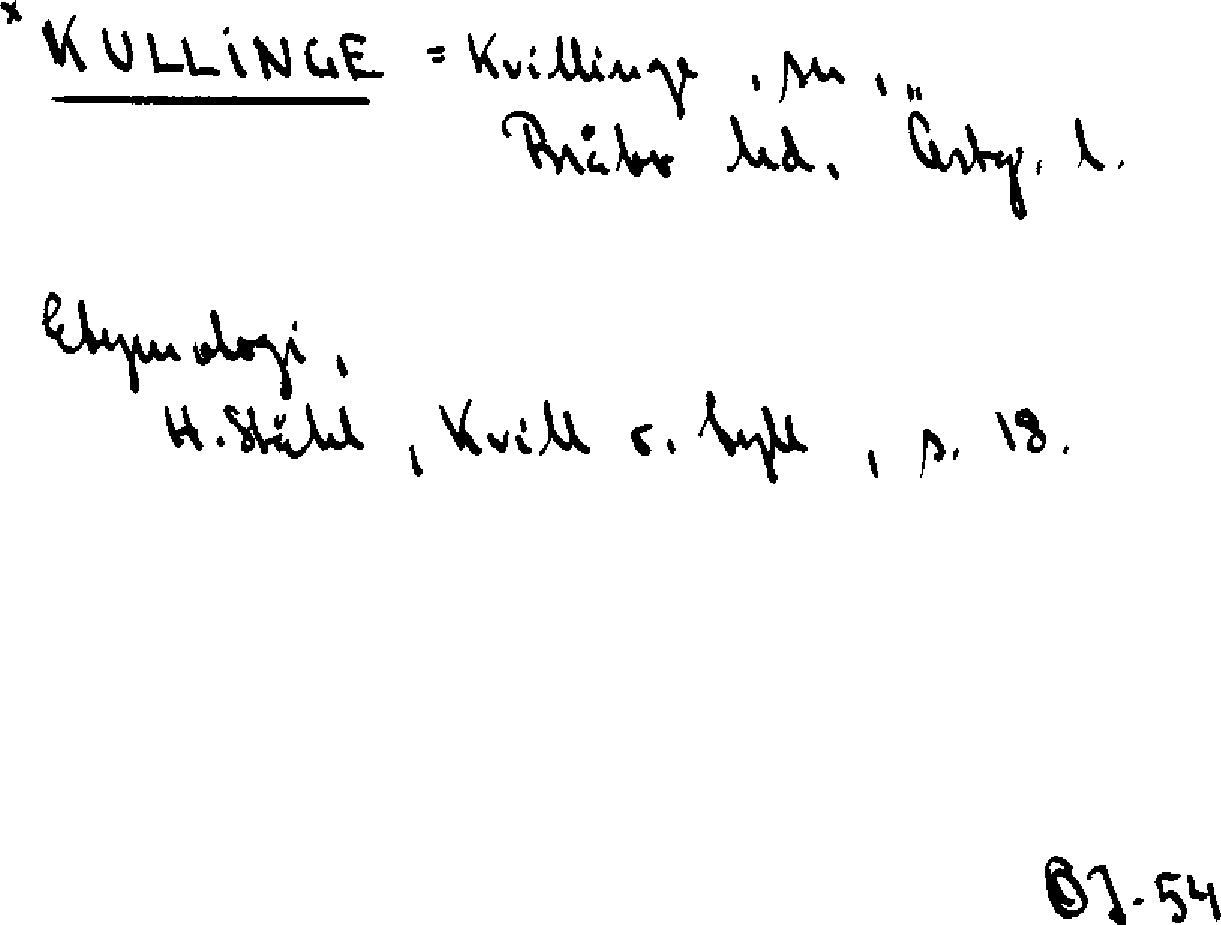 * KULLINGE = Kvillinge, sn,
Bråbo hd, Östg. l.
Etymologi,
H. Ståhl, Kvill o. tyll, s. 18.
OJ-54